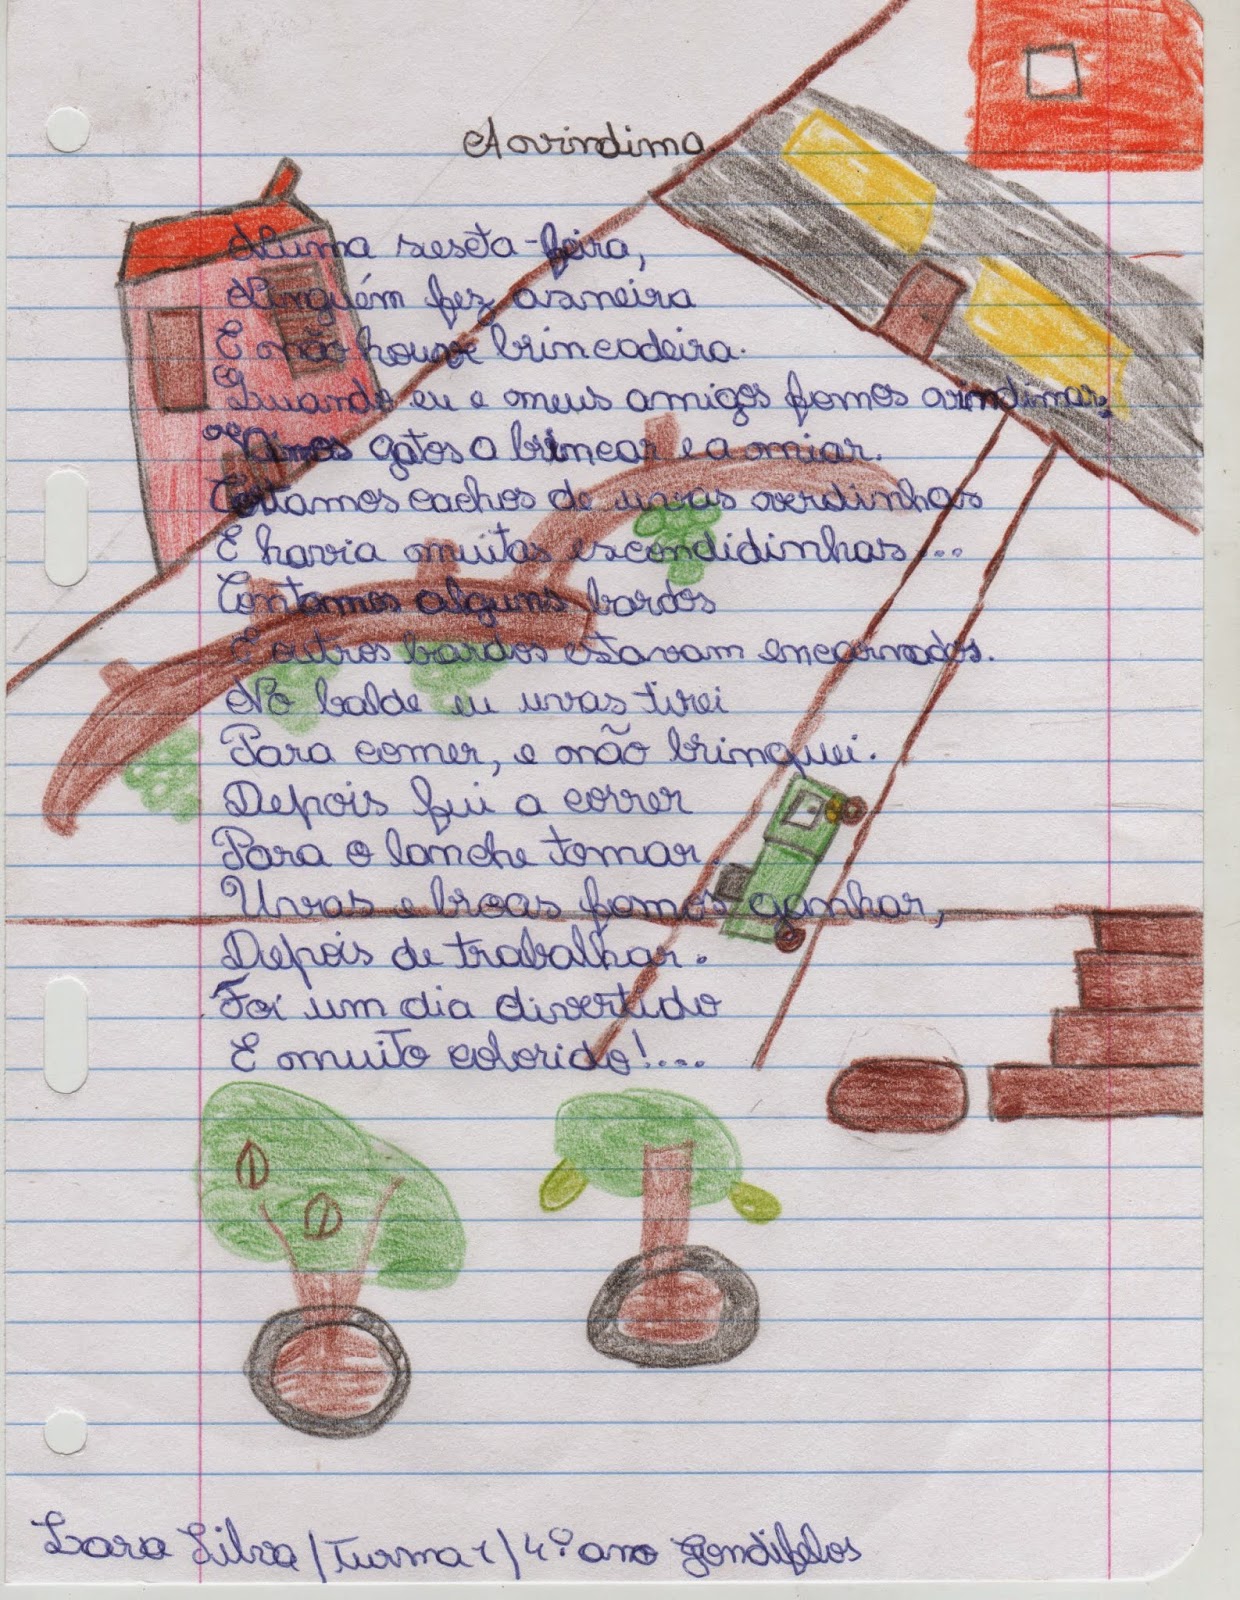 A vindima
Numa sexta-feira,
Ninguém fez asneira
E não houve brincadeira.
Quando eu e meus amigos fomos vindimar,
Vimos gatos a brincar e a miar.
Cortamos cachos de uvas verdinhas
E havia muitas escondidinhas...
Contamos alguns bardos
E outros bardos estavam encarnados.
No balde eu uvas tirei
Para comer, e não brinquei.
Depois fui a correr
Para o lanche tomar.
Uvas e broas fomos ganhar,
Depois de trabalhar.
Foi um dia divertido
E muito colorido!....
Lara Silva/Turma 1/4.º ano Gondifelos